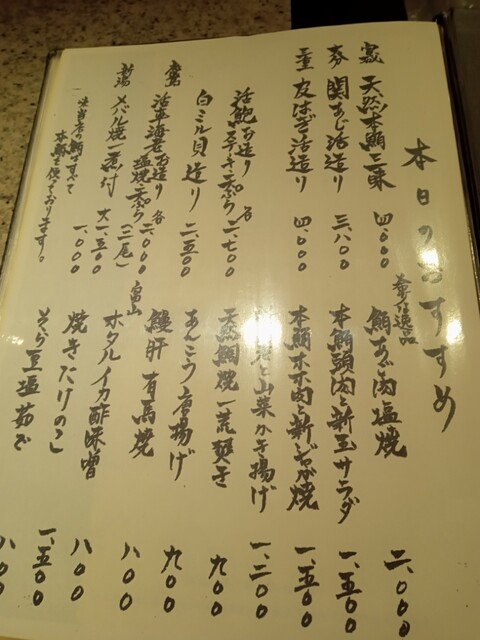 本日のおすすめ
天然本鮪三昧 四、〇〇〇
関あじ活造り 三、八〇〇
三重 皮はぎ活造り 四、〇〇〇
活鮑お造り 各 二、七〇〇
白ミル貝造り 二、五〇〇
活車海老お造り 各 二、〇〇〇
塩焼
新潟 メバル焼 煮付 大一、五〇〇
(二尾) 一、〇〇〇
当店の鮪はすべて
本鮪を使っております。
春の逸品
鮪あご肉塩焼 二、〇〇〇
本鮪頭肉と新玉サラダ 一、五〇〇
本鮪ホホ肉と新じゃが焼 一、五〇〇
と山菜かき揚げ 一、二〇〇
天然鯛焼 荒炊き 九〇〇
あんこう唐揚げ 九〇〇
鰻肝有馬焼
富山 ホタルイカ酢味噌 八〇〇
焼きたけのこ 八〇〇
そら豆塩茹で 一、五〇〇
八〇〇